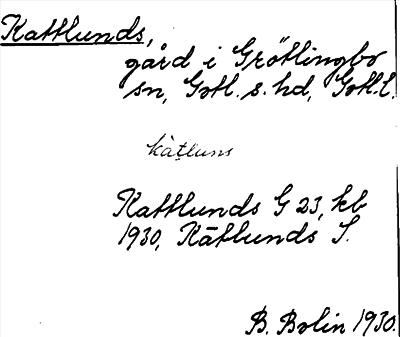 Kattlunds,
gård i Grötlingbo
sn, Gotl. s. hd, Gotl. l.
kàtḷuns
Kattlunds G 23, kb
1930, Kātlunds S.
B. Bolin 1930.